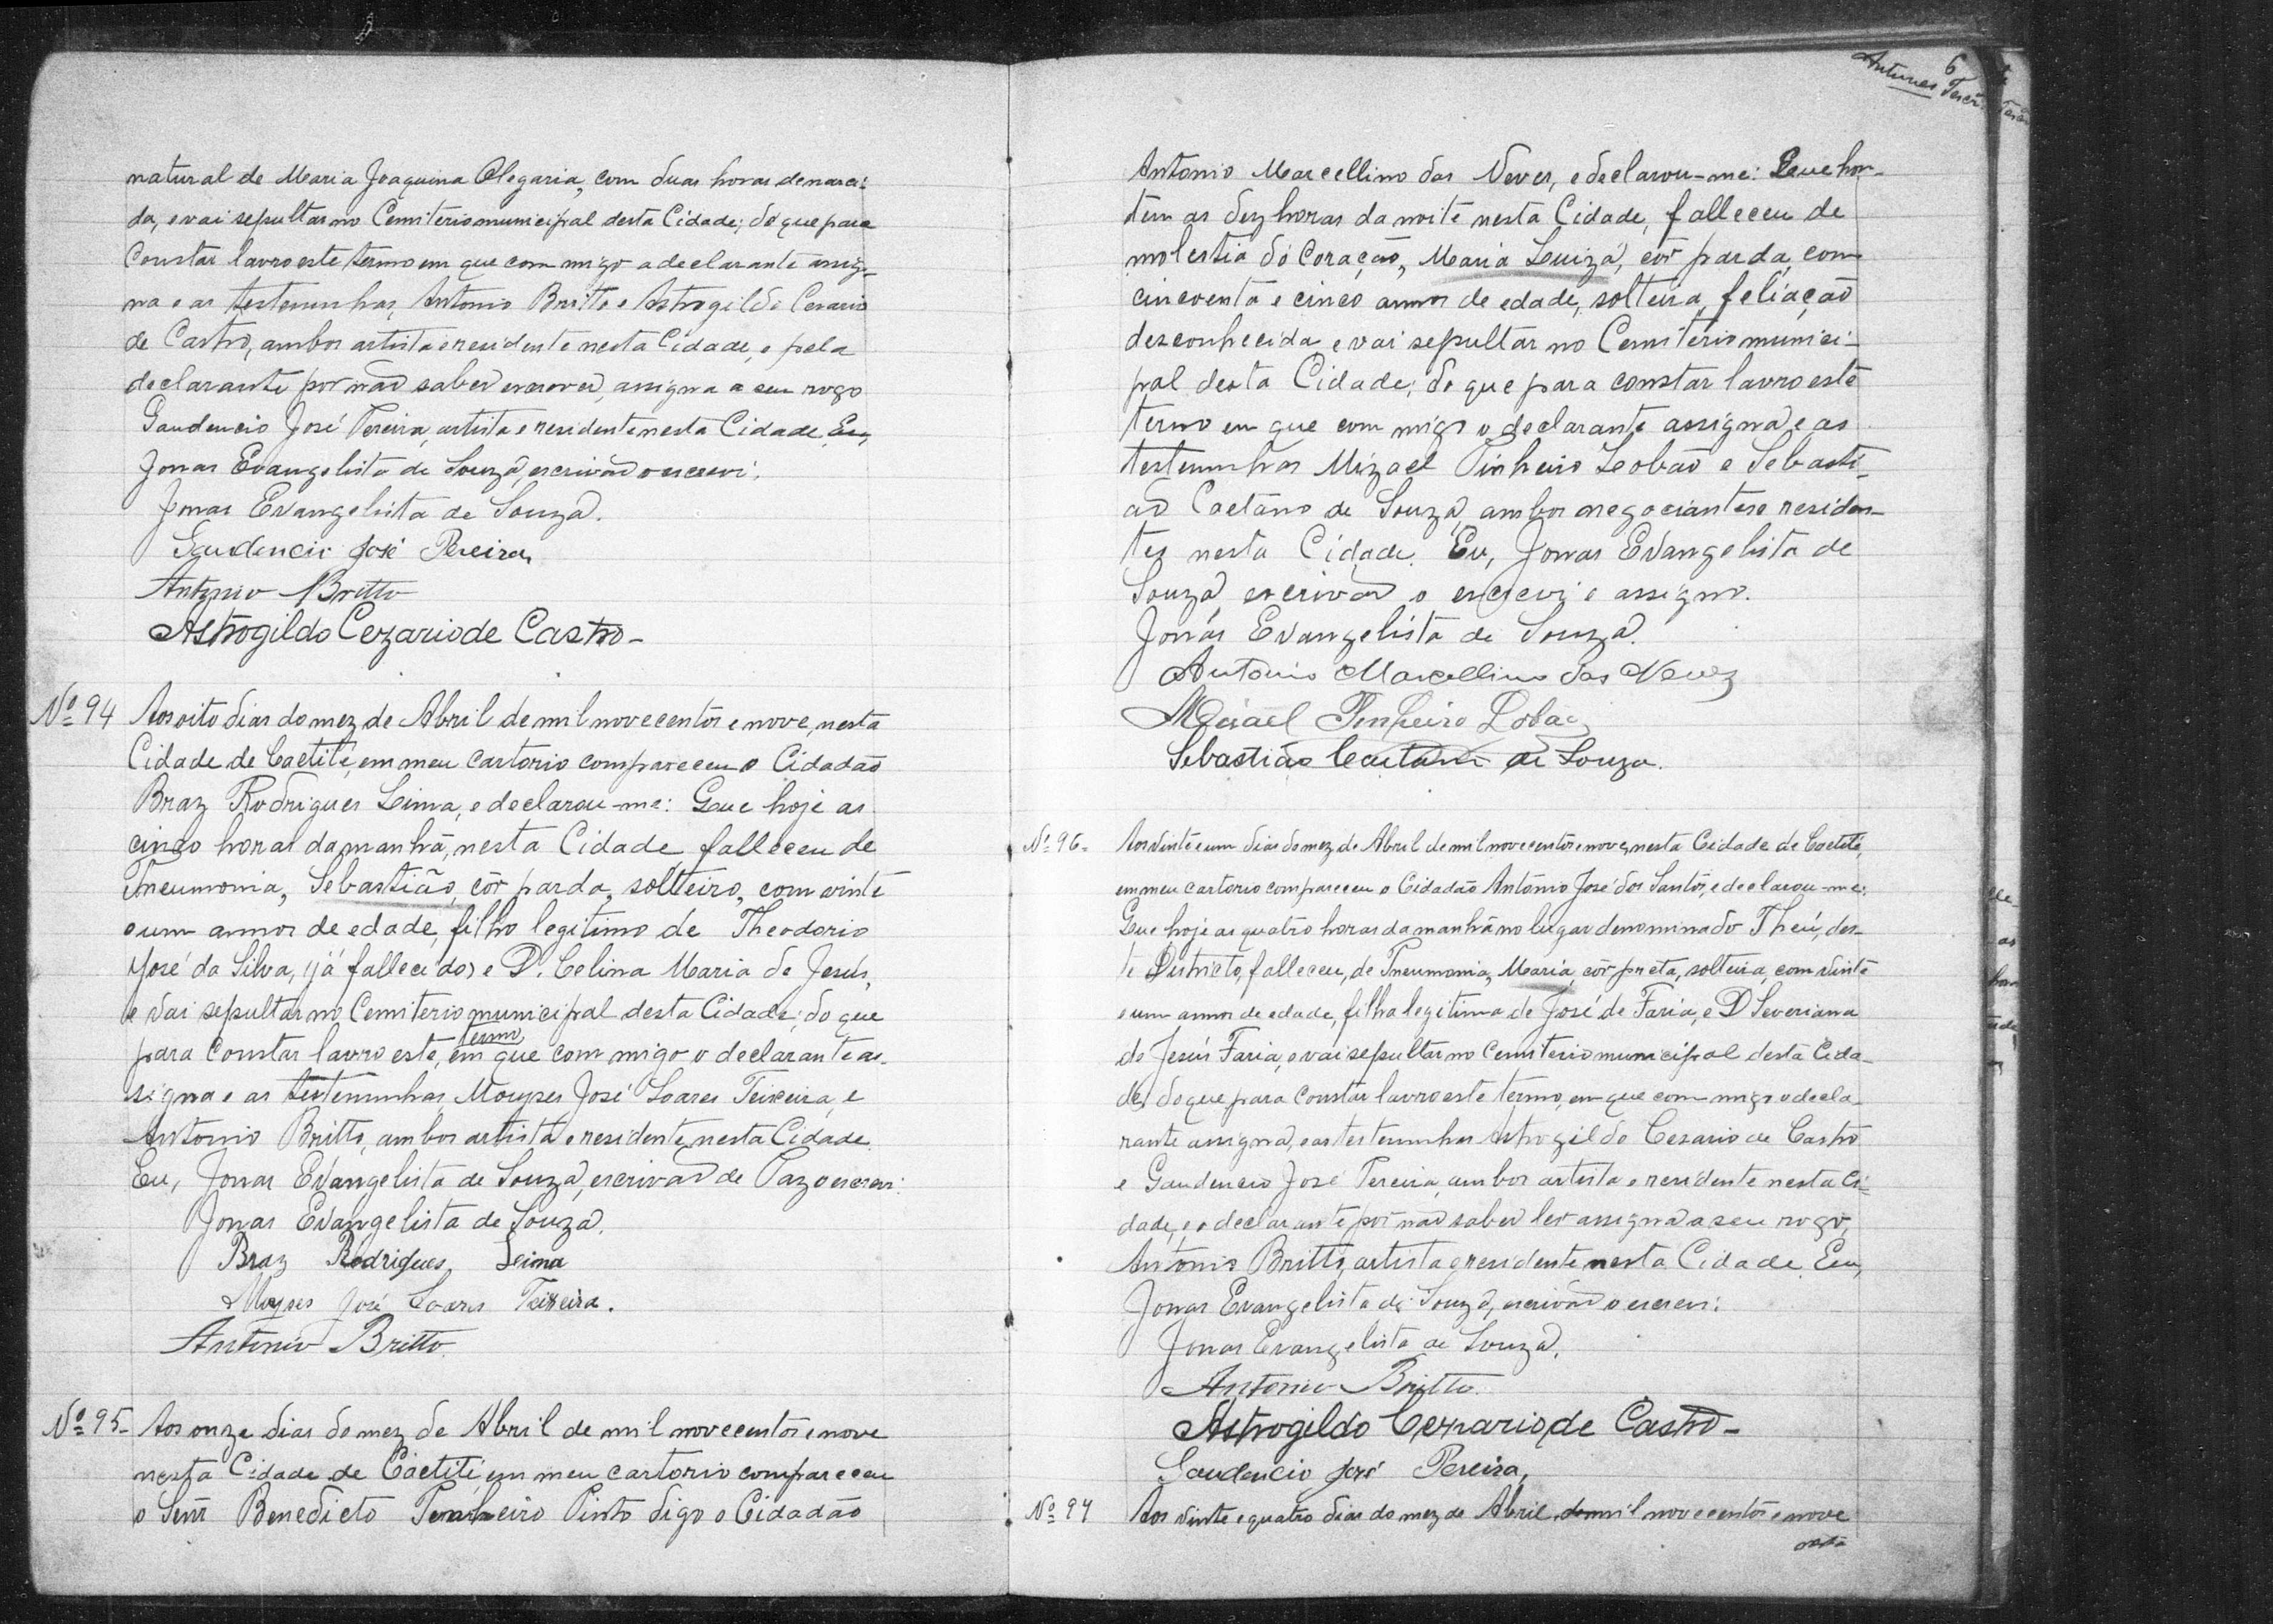 natural de Maria Joaquina Olegaria, com duas horas de nasci-
da, e vai sepultar no Cemiterio municipal desta Cidade; do que para
Constar lavro este termo em que com migo a declarante assig-
na e as testemunhas, Antonio Britto e Astrogildo Cesario
de Castro, ambos artista e residente nesta Cidade, e pela
declarante por não saber escrever, assigna a seu rogo
Gaudencio José Pereira, artista e residente nesta Cidade. Eu,
Jonas Evangelista de Souza, escrivão o escrevi.
Jonas Evangelista de Souza.
Gaudencio José Pereira,
Antonio Britto
Astrogildo Cezario de Castro-
Nº 94 Aos oito dias do mez de Abril de mil novecentos e nove, nesta
Cidade de Caetité, em meu Cartorio compareceu o Cidadão
Braz Rodrigues Lima, e declarou-me: Que hoje as
cinco horas da manhã, nesta Cidade, falleceu de
Pneumonia, Sebastião, côr parda, solteiro, com vinte
e um annos de edade, filho legitimo de Theodorio
José da Silva, (já fallecido) e D. Celina Maria de Jesús,
e vai sepultar no Cemiterio municipal desta Cidade; do que
para Constar lavro este, termo em que com migo o declarante as-
signa e as testemunhas Moyses José Soares Teixeira, e
Antonio Britto, ambos artista e residente, nesta Cidade.
Eu, Jonas Evangelista de Souza, escrivão de Paz o escrevi.
Jonas Evangelista de Souza.
Braz Rodrigues Leima
Moyses José Soares Teixeira.
Antonio Britto
Nº 95- Aos onze dias do mez de Abril de mil novecentos e nove
nesta Cidade de Caetité, em meu cartorio compareceu
o Senr Benedicto Penheiro Pinto digo o Cidadão
6
Antunes
Antonio Marcellino das Neves, e declarou-me: Que hon-
tem as dez horas da noite nesta Cidade, falleceu de
molestia do Coração, Maria Luiza, côr parda, com
cincoenta e cinco annos de edade, solteira, feliação
desconhecida e vai sepultar no Cemiterio munici-
pal desta Cidade; do que para constar lavro este
termo em que com migo o declarante assigna, e as
testemunhas Mizael Pinheiro Leobão e Sebasti-
ão Caetano de Souza, ambos negociantes e residen-
tes nesta Cidade. Eu, Jonas Evangelista de
Souza, escrivão o escrevi e assigno.
Jonas Evangelista de Souza.
Antonio Marcellino das Neves
Misael Penheiro Lobão
Sebastião Caetano de Souza.
Nº 96- Aos vinte e um dias do mez de Abril de mil novecentos e nove, nesta Cidade de Caetité,
em meu cartorio compareceu o Cidadão Antonio José dos Santos, e declarou-me:
Que hoje as quatro horas da manhã no lugar denominado Theú, des-
te Districto, falleceu, de Pneumonia, Maria, côr preta, solteira, com vinte
e um annos de edade, filha legitima de José de Faria, e D Severiana
de Jesús Faria, e vai sepultar no Cemiterio municipal desta Cida-
de; do que para Constar lavro este termo, em que com migo o decla-
rante assigna, e as testemunhas Astrogildo Cesario de Castro
e Gaudencio José Pereira, ambos artista e residente nesta Ci-
dade, e o declarante por não saber ler assigna a seu rogo,
Antonio Britto, artista e residente nesta Cidade. Eu,
Jonas Evangelista de Souza, escrivão o escrevi.
Jonas Evangelista de Souza.
Antonio Britto.
Astrogildo Cezario de Castro-
Gaudencio José Pereira,
Nº 97 Aos vinte e quatro dias do mez de Abril de mil novecentos e nove
nesta